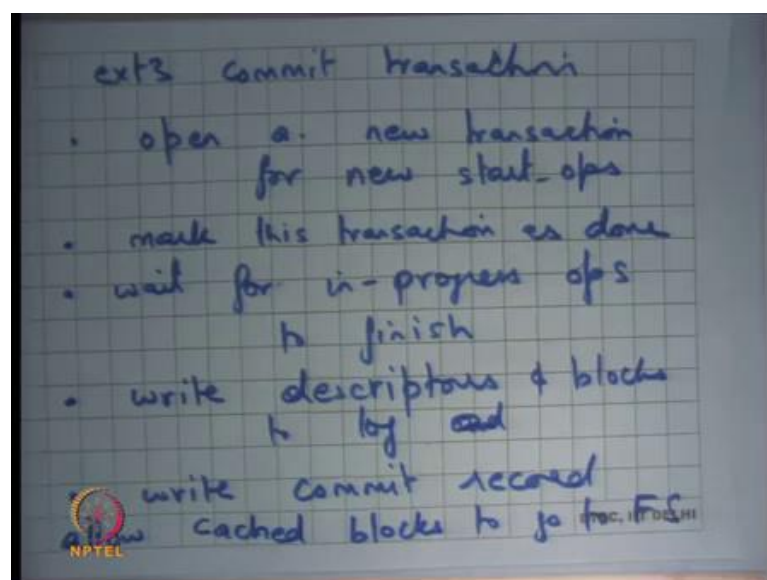 ext3 commit transaction
• open a new transaction
for new start_ops
• mark this transaction as done
• wait for in-progress ops
to finish
• write descriptors & blocks
to log
• write commit record
allow cached blocks to go to FS
NPTEL